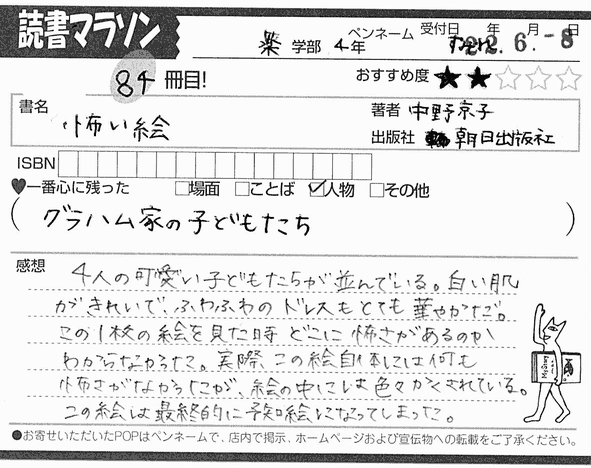 読書マラソン
薬 学部 4年 ペンネーム 受付日 年 月 日
すみれ. 6.-8
84 冊目! おすすめ度 ★★☆☆☆
書名 怖い絵
著者 中野京子
出版社 朝日出版社
ISBN
♥一番心に残った □場面 □ことば ☑人物 □その他
(グラハム家の子どもたち)
感想 4人の可愛い子どもたちが並んでいる。白い肌
がきれいで、ふわふわのドレスもとても華やかだ。
この1枚の絵を見た時どこに怖さがあるのか
わからなかった。実際、この絵自体には何も
怖さがなかったが、絵の中には色々かくされている。
この絵は最終的に予知絵になってしまった。
●お寄せいただいたPOPはペンネームで、店内で掲示、ホームページおよび宣伝物への転載をご了承ください。